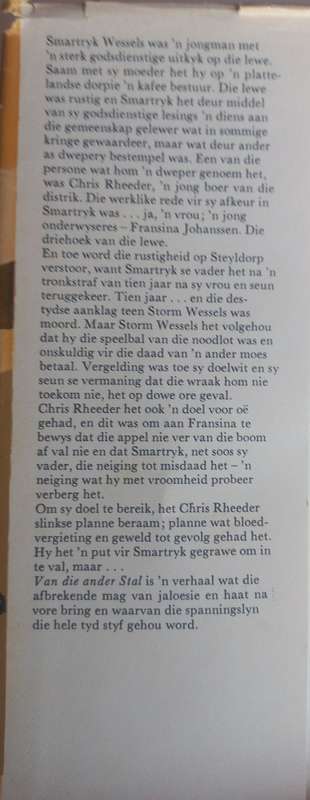 Smartryk Wessels was 'n jongman met
'n sterk godsdienstige uitkyk op die lewe.
Saam met sy moeder het hy op 'n platte-
landse dorpie 'n kafee bestuur. Die lewe
was rustig en Smartryk het deur middel
van sy godsdienstige lesings 'n diens aan
die gemeenskap gelewer wat in sommige
kringe gewaardeer, maar wat deur ander
as dwepery bestempel was. Een van die
persone wat hom 'n dweper genoem het,
was Chris Rheeder, 'n jong boer van die
distrik. Die werklike rede vir sy afkeur in
Smartryk was . . . ja, 'n vrou; 'n jong
onderwyseres – Fransina Johanssen. Die
driehoek van die lewe.
En toe word die rustigheid op Steyldorp
verstoor, want Smartryk se vader het na 'n
tronkstraf van tien jaar na sy vrou en seun
teruggekeer. Tien jaar . . . en die des-
tydse aanklag teen Storm Wessels was
moord. Maar Storm Wessels het volgehou
dat hy die speelbal van die noodlot was en
onskuldig vir die daad van 'n ander moes
betaal. Vergelding was toe sy doelwit en sy
seun se vermaning dat die wraak hom nie
toekom nie, het op dowe ore geval.
Chris Rheeder het ook 'n doel voor oë
gehad, en dit was om aan Fransina te
bewys dat die appel nie ver van die boom
af val nie en dat Smartryk, net soos sy
vader, die neiging tot misdaad het – 'n
neiging wat hy met vroomheid probeer
verberg het.
Om sy doel te bereik, het Chris Rheeder
slinkse planne beraam; planne wat bloed-
vergieting en geweld tot gevolg gehad het.
Hy het 'n put vir Smartryk gegrawe om in
te val, maar . . .
Van die ander Stal is 'n verhaal wat die
afbrekende mag van jaloesie en haat na
vore bring en waarvan die spanningslyn
die hele tyd styf gehou word.